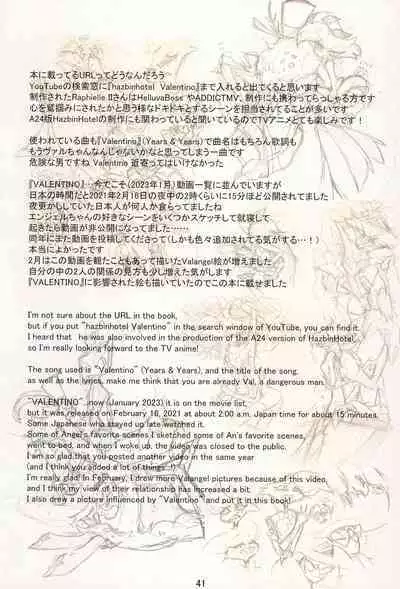 本に載ってるURLってどうなんだろう
YouTubeの検索窓に『hazbinhotel Valentino』まで入れると出てくると思います
制作されたRaphielle IIさんはHelluvaBoss やADDICTMV、制作にも携わってらっしゃる方です
心を鷲掴みにされたかと思う様なドキドキとするシーンを担当されてることが多いです
A24版HazbinHotelの制作にも関わっていると聞いているのでTVアニメとても楽しみです！
使われている曲も『Valentino』（Years & Years）で曲名はもちろん歌詞も
もうヴァルちゃんなんじゃないかなと思ってしまう一曲です
危険な男ですね Valentino 近寄ってはいけなかった
『VALENTINO』…今でこそ（2023年1月）動画一覧に並んでいますが
日本の時間だと2021年2月18日の夜中の2時くらいに15分ほど公開されてました
夜更かししていた日本人が何人か食らってましたね
エンジェルちゃんの好きなシーンをいくつかスケッチして就寝して
起きたら動画が非公開になってました……
同年にまた動画を投稿してくださって（しかも色々追加されてる気がする…！）
本当によかったです
2月はこの動画を観たこともあって描いたValangel絵が増えました
自分の中の2人の関係の見方も少し増えた気がします
『VALENTINO』に影響された絵も描いていたのでこの本に載せました
I'm not sure about the URL in the book,
but if you put "hazbinhotel Valentino" in the search window of YouTube, you can find it.
I heard that he was also involved in the production of the A24 version of HazbinHotel,
so I'm really looking forward to the TV anime!
The song used is "Valentino" (Years & Years), and the title of the song.
as well as the lyrics, make me think that you are already Val, a dangerous man.
"VALENTINO"...now (January 2023) it is on the movie list,
but it was released on February 18, 2021 at about 2:00 a.m. Japan time for about 15 minutes.
Some Japanese who stayed up late watched it.
Some of Angel's favorite scenes I sketched some of An's favorite scenes,
went to bed, and when I woke up, the video was closed to the public.
I am so glad that you posted another video in the same year
(and I think you added a lot of things...!)
I'm really glad! In February, I drew more Valangel pictures because of this video,
and I think my view of their relationship has increased a bit.
I also drew a picture influenced by "Valentino" and put it in this book!
41